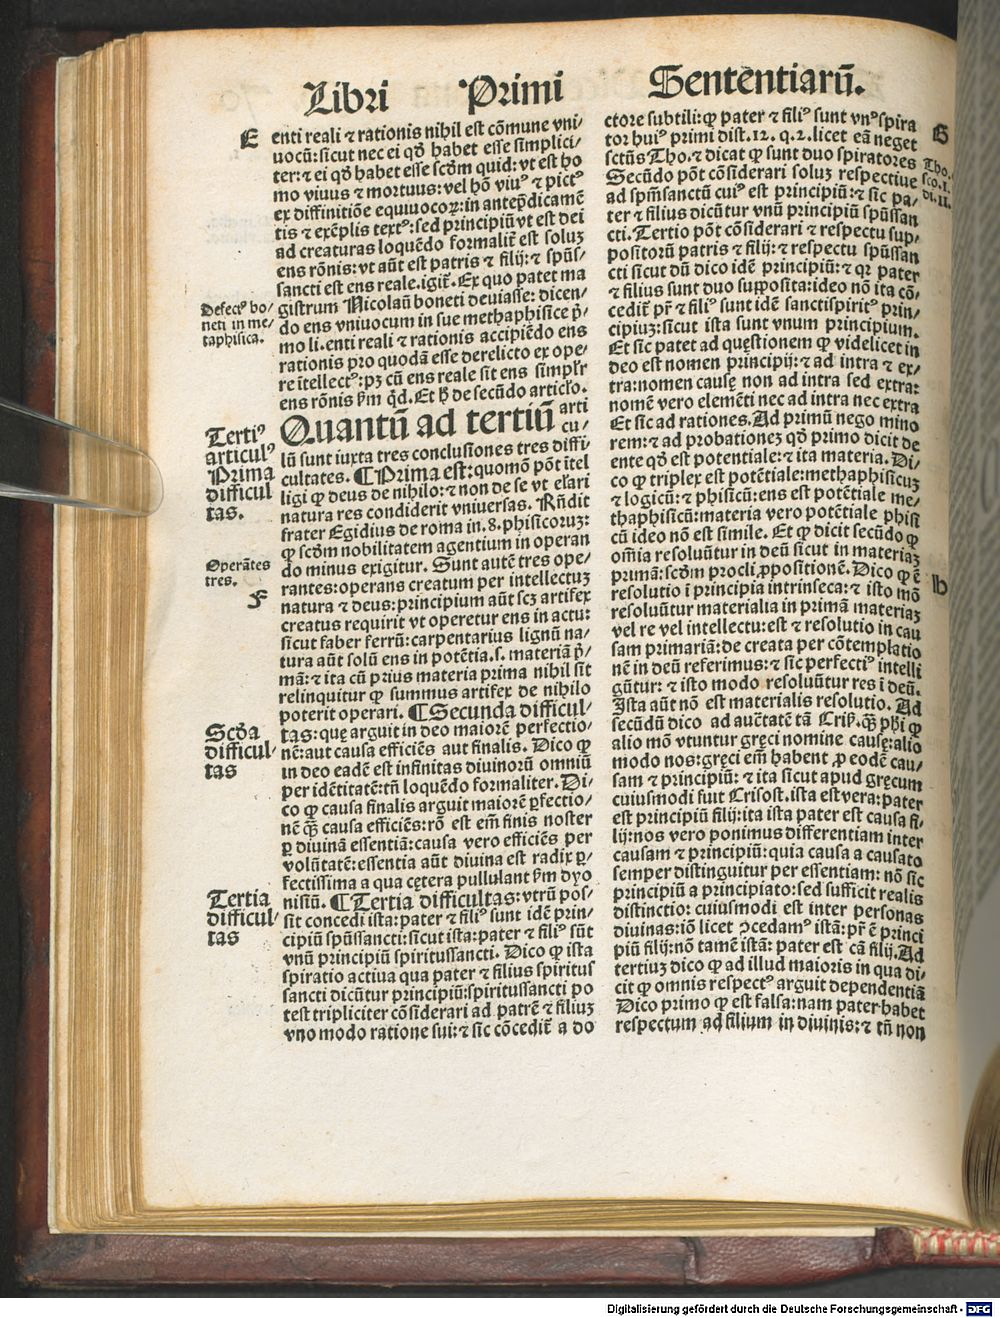 Libri Primi Sententiarū.
E
enti reali ⁊ rationis nihil est cōmune vni/
uocū: sicut nec ei qđ habet esse simplici/
ter: ⁊ ei qđ habet esse scđm quid: vt est ho
mo viuus ⁊ mortuus: vel hō viuꝰ ⁊ pictꝰ
ex diffinitiōe equiuocoꝝ: in antep̄dicamē
tis ⁊ exēplis textꝰ: sed principiū vt est dei
ad creaturas loquēdo formalit̄ est soluz
ens rōnis: vt aūt est patris ⁊ filij: ⁊ spūs/
sancti est ens reale. igit̄. Ex quo patet ma
gistrum Nicolaū boneti deuiasse: dicen/
do ens vniuocum in sue methaphisice p̄/
mo li. enti reali ⁊ rationis accipiēdo ens
rationis pro quodā esse derelicto ex ope/
re ītellectꝰ: pꝫ cū ens reale sit ens simplꝛ
ens rōnis ẜm q̄d. Et ḣ de secūdo articľo.
Defectꝰ bo/
neti in me/
taphisica.
Quantū ad tertiū arti
cu/
lū sunt iuxta tres conclusiones tres diffi
cultates. ¶ Prima est: quomō pōt ītel
ligi ꝙ deus de nihilo: ⁊ non de se vt esari
natura res condiderit vniuersas. Rn̄dit
frater Egidius de roma in. 8. phisicoruz:
ꝙ scđm nobilitatem agentium in operan
do minus exigitur. Sunt autē tres ope/
rantes: operans creatum per intellectuz
natura ⁊ deus: principium aūt scꝫ artifex
creatus requirit vt operetur ens in actu:
sicut faber ferrū: carpentarius lignū na/
tura aūt solū ens in potētia. s. materiā p̄/
mā: ⁊ ita cū prius materia prima nihil sit
relinquitur ꝙ summus artifex de nihilo
poterit operari. ¶ Secunda difficul/
tas: quę arguit in deo maiorē perfectio/
nē: aut causa efficiēs aut finalis. Dico ꝙ
in deo eadē est infinitas diuinorū omniū
per idētitatē: tn̄ loquēdo formaliter. Di/
co ꝙ causa finalis arguit maiorē ꝑfectio/
nē q̄ꝫ causa efficiēs: rō est em̄ finis noster
ꝑ diuinā essentiā: causa vero efficiēs per
volūtatē: essentia aūt diuina est radix ꝑ/
fectissima a qua cętera pullulant ẜm dyo
nisiū. ¶ Tertia difficultas: vtrū pos/
sit concedi ista: pater ⁊ filiꝰ sunt idē prin/
cipiū spūssancti: sicut ista: pater ⁊ filiꝰ sūt
vnū principiū spiritussancti. Dico ꝙ ista
spiratio actiua qua pater ⁊ filius spiritus
sancti dicūtur principiū: spiritussancti po
test tripliciter cōsiderari ad patrē ⁊ filiuꝫ
vno modo ratione sui: ⁊ sic cōcedit̄ a do
Tertiꝰ
articulꝰ
Prima
difficul
tas.
Operātes
tres.
F
Scđa
difficul/
tas
Tertia
difficul/
tas
ctore subtili: ꝙ pater ⁊ filiꝰ sunt vnꝰ spira
tor huiꝰ primi dist. 12. q. 2. licet eā neget
sctūs Tho. ⁊ dicat ꝙ sunt duo spiratores
Secūdo pōt cōsiderari soluz respectiue
ad spm̄sanctū cuiꝰ est principiū: ⁊ sic pa/
ter ⁊ filius dicūtur vnū principiū spūssan
cti. Tertio pōt cōsiderari ⁊ respectu sup/
positorū patris ⁊ filij: ⁊ respectu spūssan
cti sicut dū dico idē principiū: ⁊ qꝛ pater
⁊ filius sunt duo supposita: ideo nō ita cō/
cedit̄ pr̄ ⁊ filiꝰ sunt idē sanctispiritꝰ prin/
cipiuꝫ: sicut ista sunt vnum principium.
Et sic patet ad questionem ꝙ videlicet in
deo est nomen principij: ⁊ ad intra ⁊ ex/
tra: nomen causę non ad intra sed extra:
nomē vero elemēti nec ad intra nec extra
Et sic ad rationes. Ad primū nego mino
rem: ⁊ ad probationeꝫ qđ primo dicit de
ente qđ est potentiale: ⁊ ita materia. Di/
co ꝙ triplex est potētiale: methaphisicuꝫ
⁊ logicū: ⁊ phisicū: ens est potētiale me/
thaphisicū: materia vero potētiale phisi
cū ideo nō est simile. Et ꝙ dicit secūdo ꝙ
om̄ia resoluūtur in deū sicut in materiaꝫ
primā: scđm procli ꝓpositionē. Dico ꝙ ē
resolutio ī principia intrinseca: ⁊ isto mō
resoluūtur materialia in primā materiaꝫ
vel re vel intellectu: est ⁊ resolutio in cau
sam primariā: de creata per cōtemplatio
nē in deū referimus: ⁊ sic perfectiꝰ intelli
gūtur: ⁊ isto modo resoluūtur res ī deū.
Ista aūt nō est materialis resolutio. Ad
secūdū dico ad auc̄tatē tā Crip̄. q̄ꝫ ph̄i ꝙ
alio mō vtuntur gręci nomine causę: alio
modo nos: gręci em̄ habent ꝓ eodē cau/
sam ⁊ principiū: ⁊ ita sicut apud gręcum
cuiusmodi fuit Crisost. ista est vera: pater
est principiū filij: ita ista pater est causa fi/
lij: nos vero ponimus differentiam inter
causam ⁊ principiū: quia causa a causato
semper distinguitur per essentiam: nō sic
principiū a principiato: sed sufficit realis
distinctio: cuiusmodi est inter personas
diuinas: iō licet ↄcedamꝰ istā: pr̄ ē princi
piū filij: nō tamē istā: pater est cā filij. Ad
tertiuꝫ dico ꝙ ad illud maioris in qua di/
cit ꝙ omnis respectꝰ arguit dependentiā
Dico primo ꝙ est falsa: nam pater habet
respectum ad filium in diuinis: ⁊ tn̄ non
G
Tho.
sco. 1.
di. 11.
h
Digitalisierung gefördert durch die Deutsche Forschungsgemeinschaft - DFG